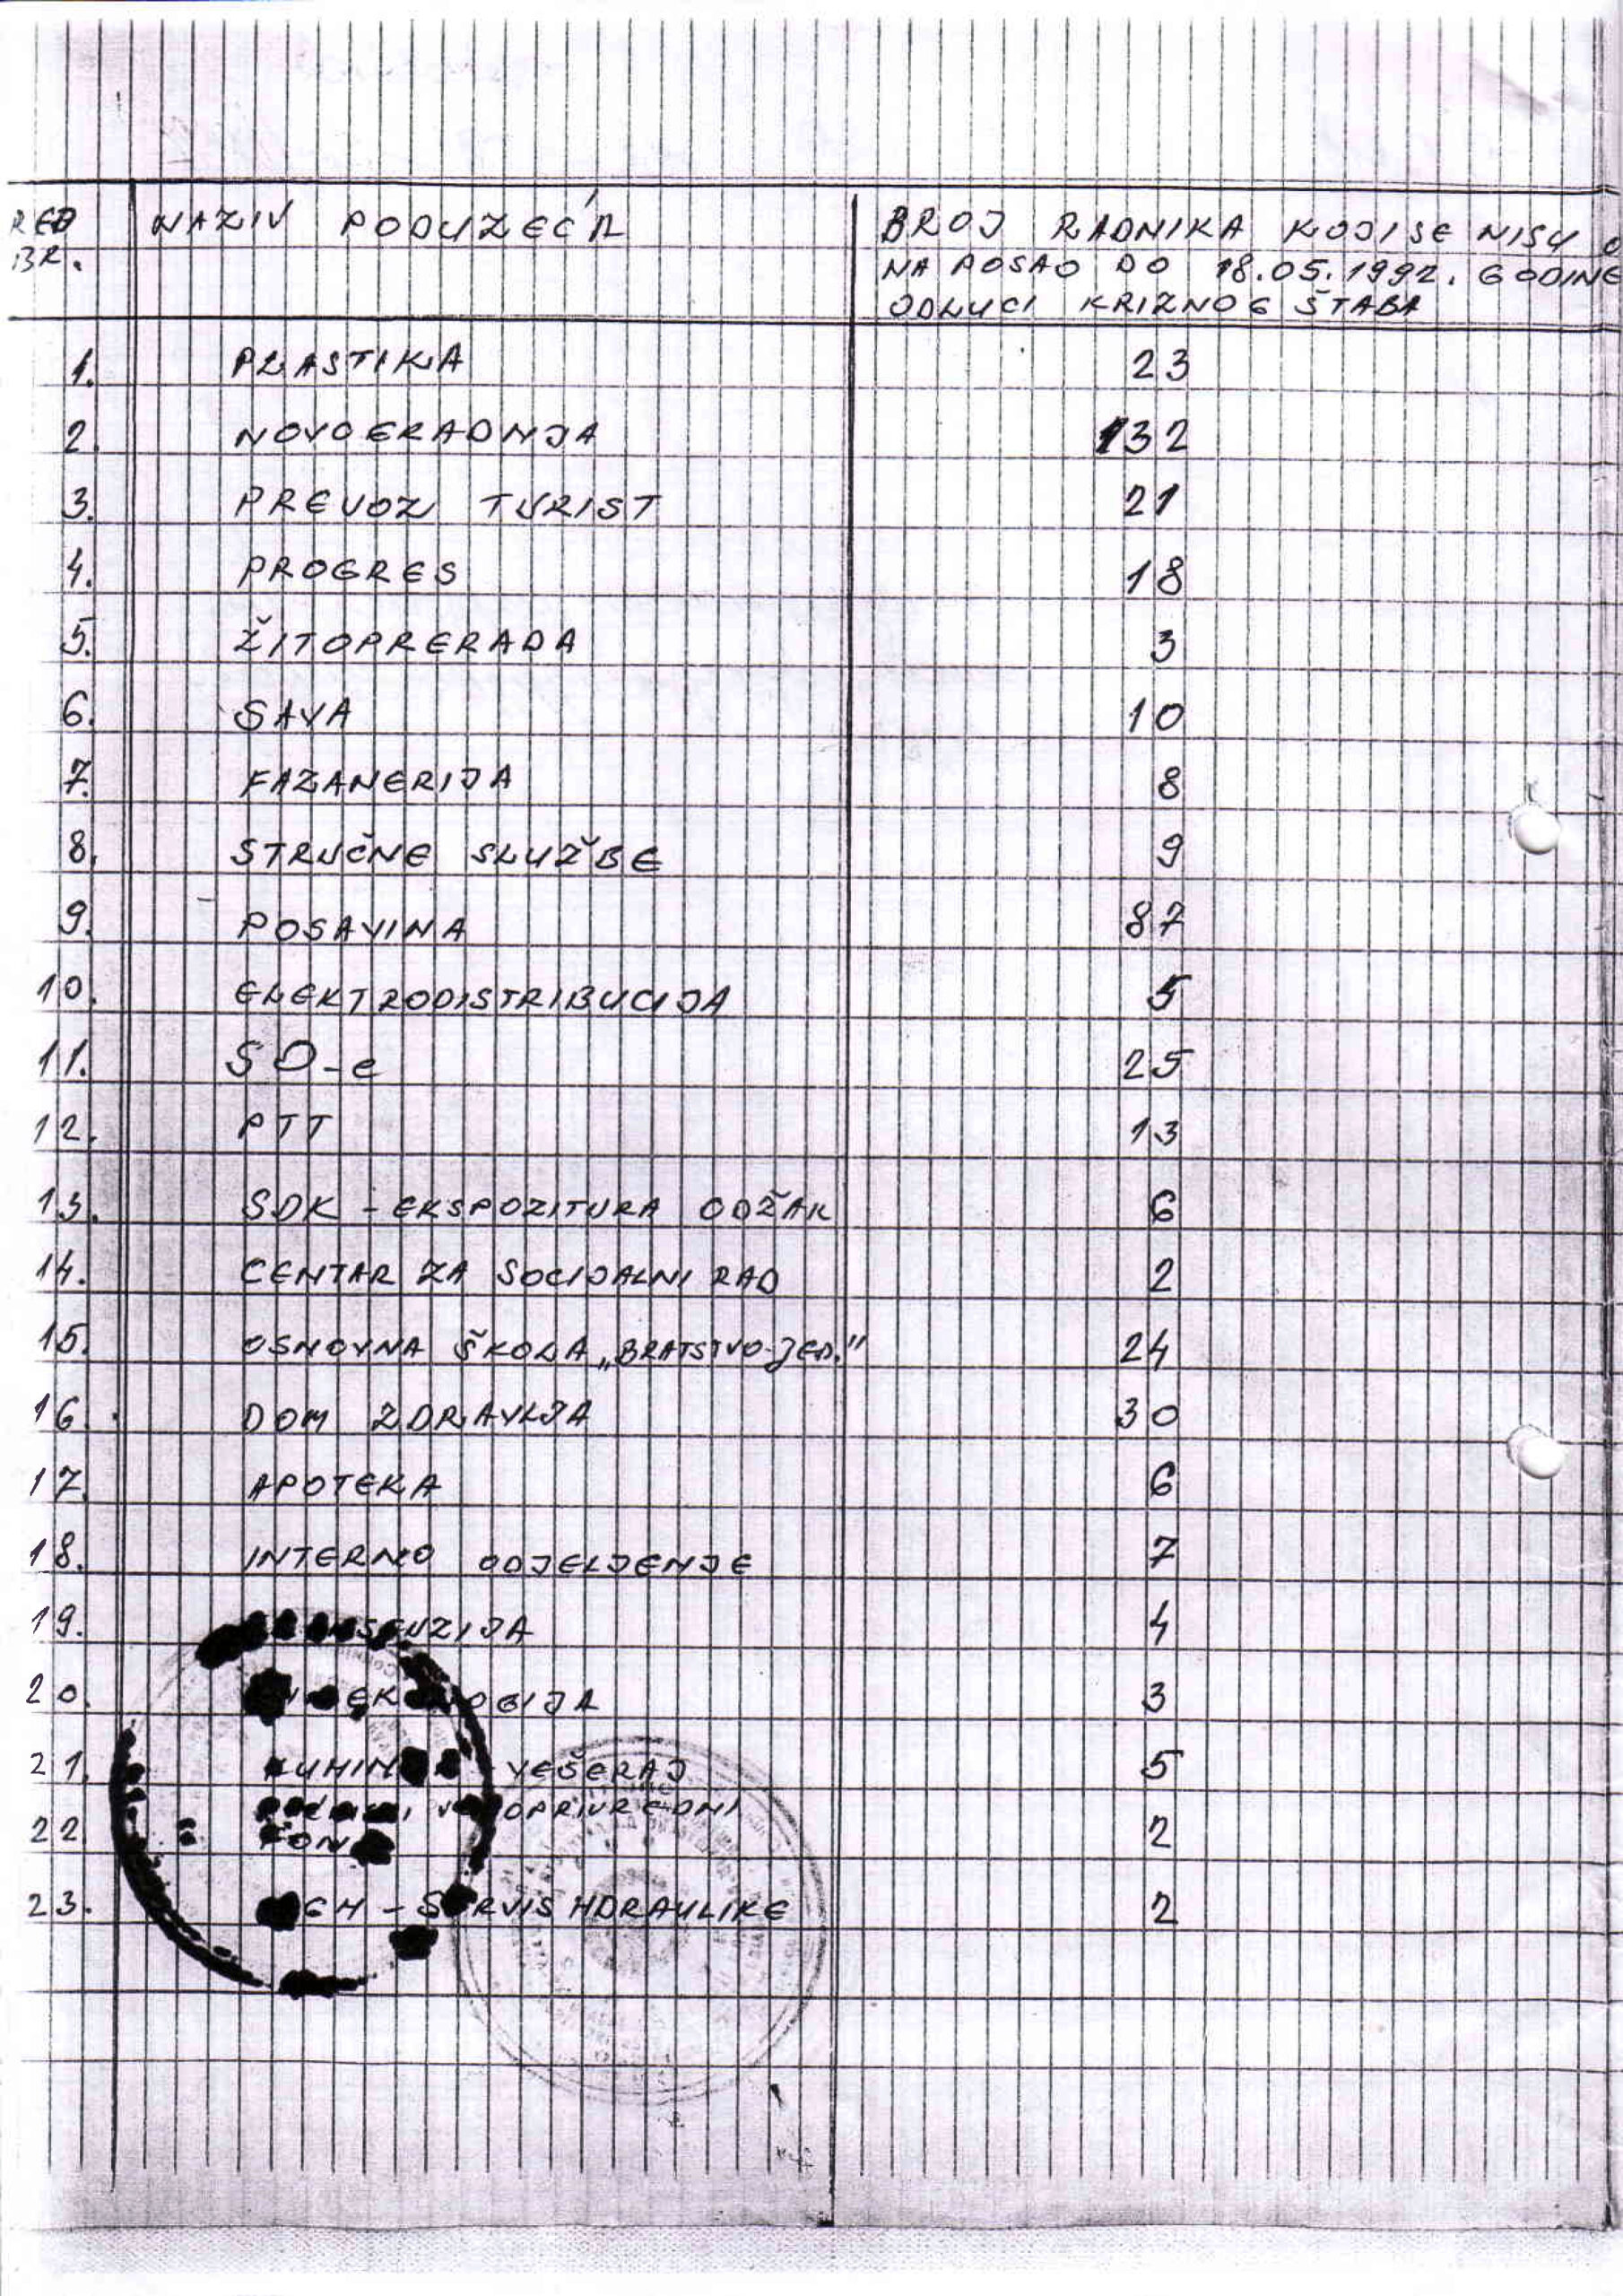 RED NAZIV PODUZEĆA BROJ RADNIKA KOJI SE NISU
BR. NA POSAO DO 18.05.1992. GODINE
ODLUCI KRIZNOG ŠTABA
1. PLASTIKA 23
2. NOVOGRADNJA 132
3. PREVOZ TURIST 21
4. PROGRES 18
5. ŽITOPRERADA 3
6. SAVA 10
7. FAZANERIJA 8
8. STRUČNE SLUŽBE 9
9. POSAVINA 87
10. ELEKTRODISTRIBUCIJA 5
11. SO-e 25
12. PTT 13
13. SDK - EKSPOZITURA ODŽAK 6
14. CENTAR ZA SOCIJALNI RAD 2
15. OSNOVNA ŠKOLA „BRATSTVO-JED." 24
16. DOM ZDRAVLJA 30
17. APOTEKA 6
18. INTERNO ODJELJENJE 7
19. 4
20. 3
21. VEŠERAJ 5
22. 2
23. SERVIS HDRAULIKE 2